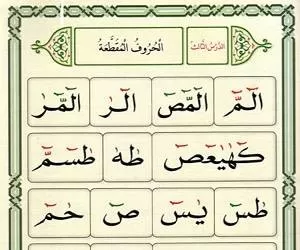 الدَّرْسُ الثَّالِثُ الْحُرُوفُ الْمُقَطَّعَةُ
الٓمّٓ الٓمّٓصٓ الٓرٰ الٓمّٓرٰ
كٓهٰيٰعٓصٓ طٰهٰ طٰسٓمّٓ
طٰسٓ يٰسٓ صٓ حٰمٓ